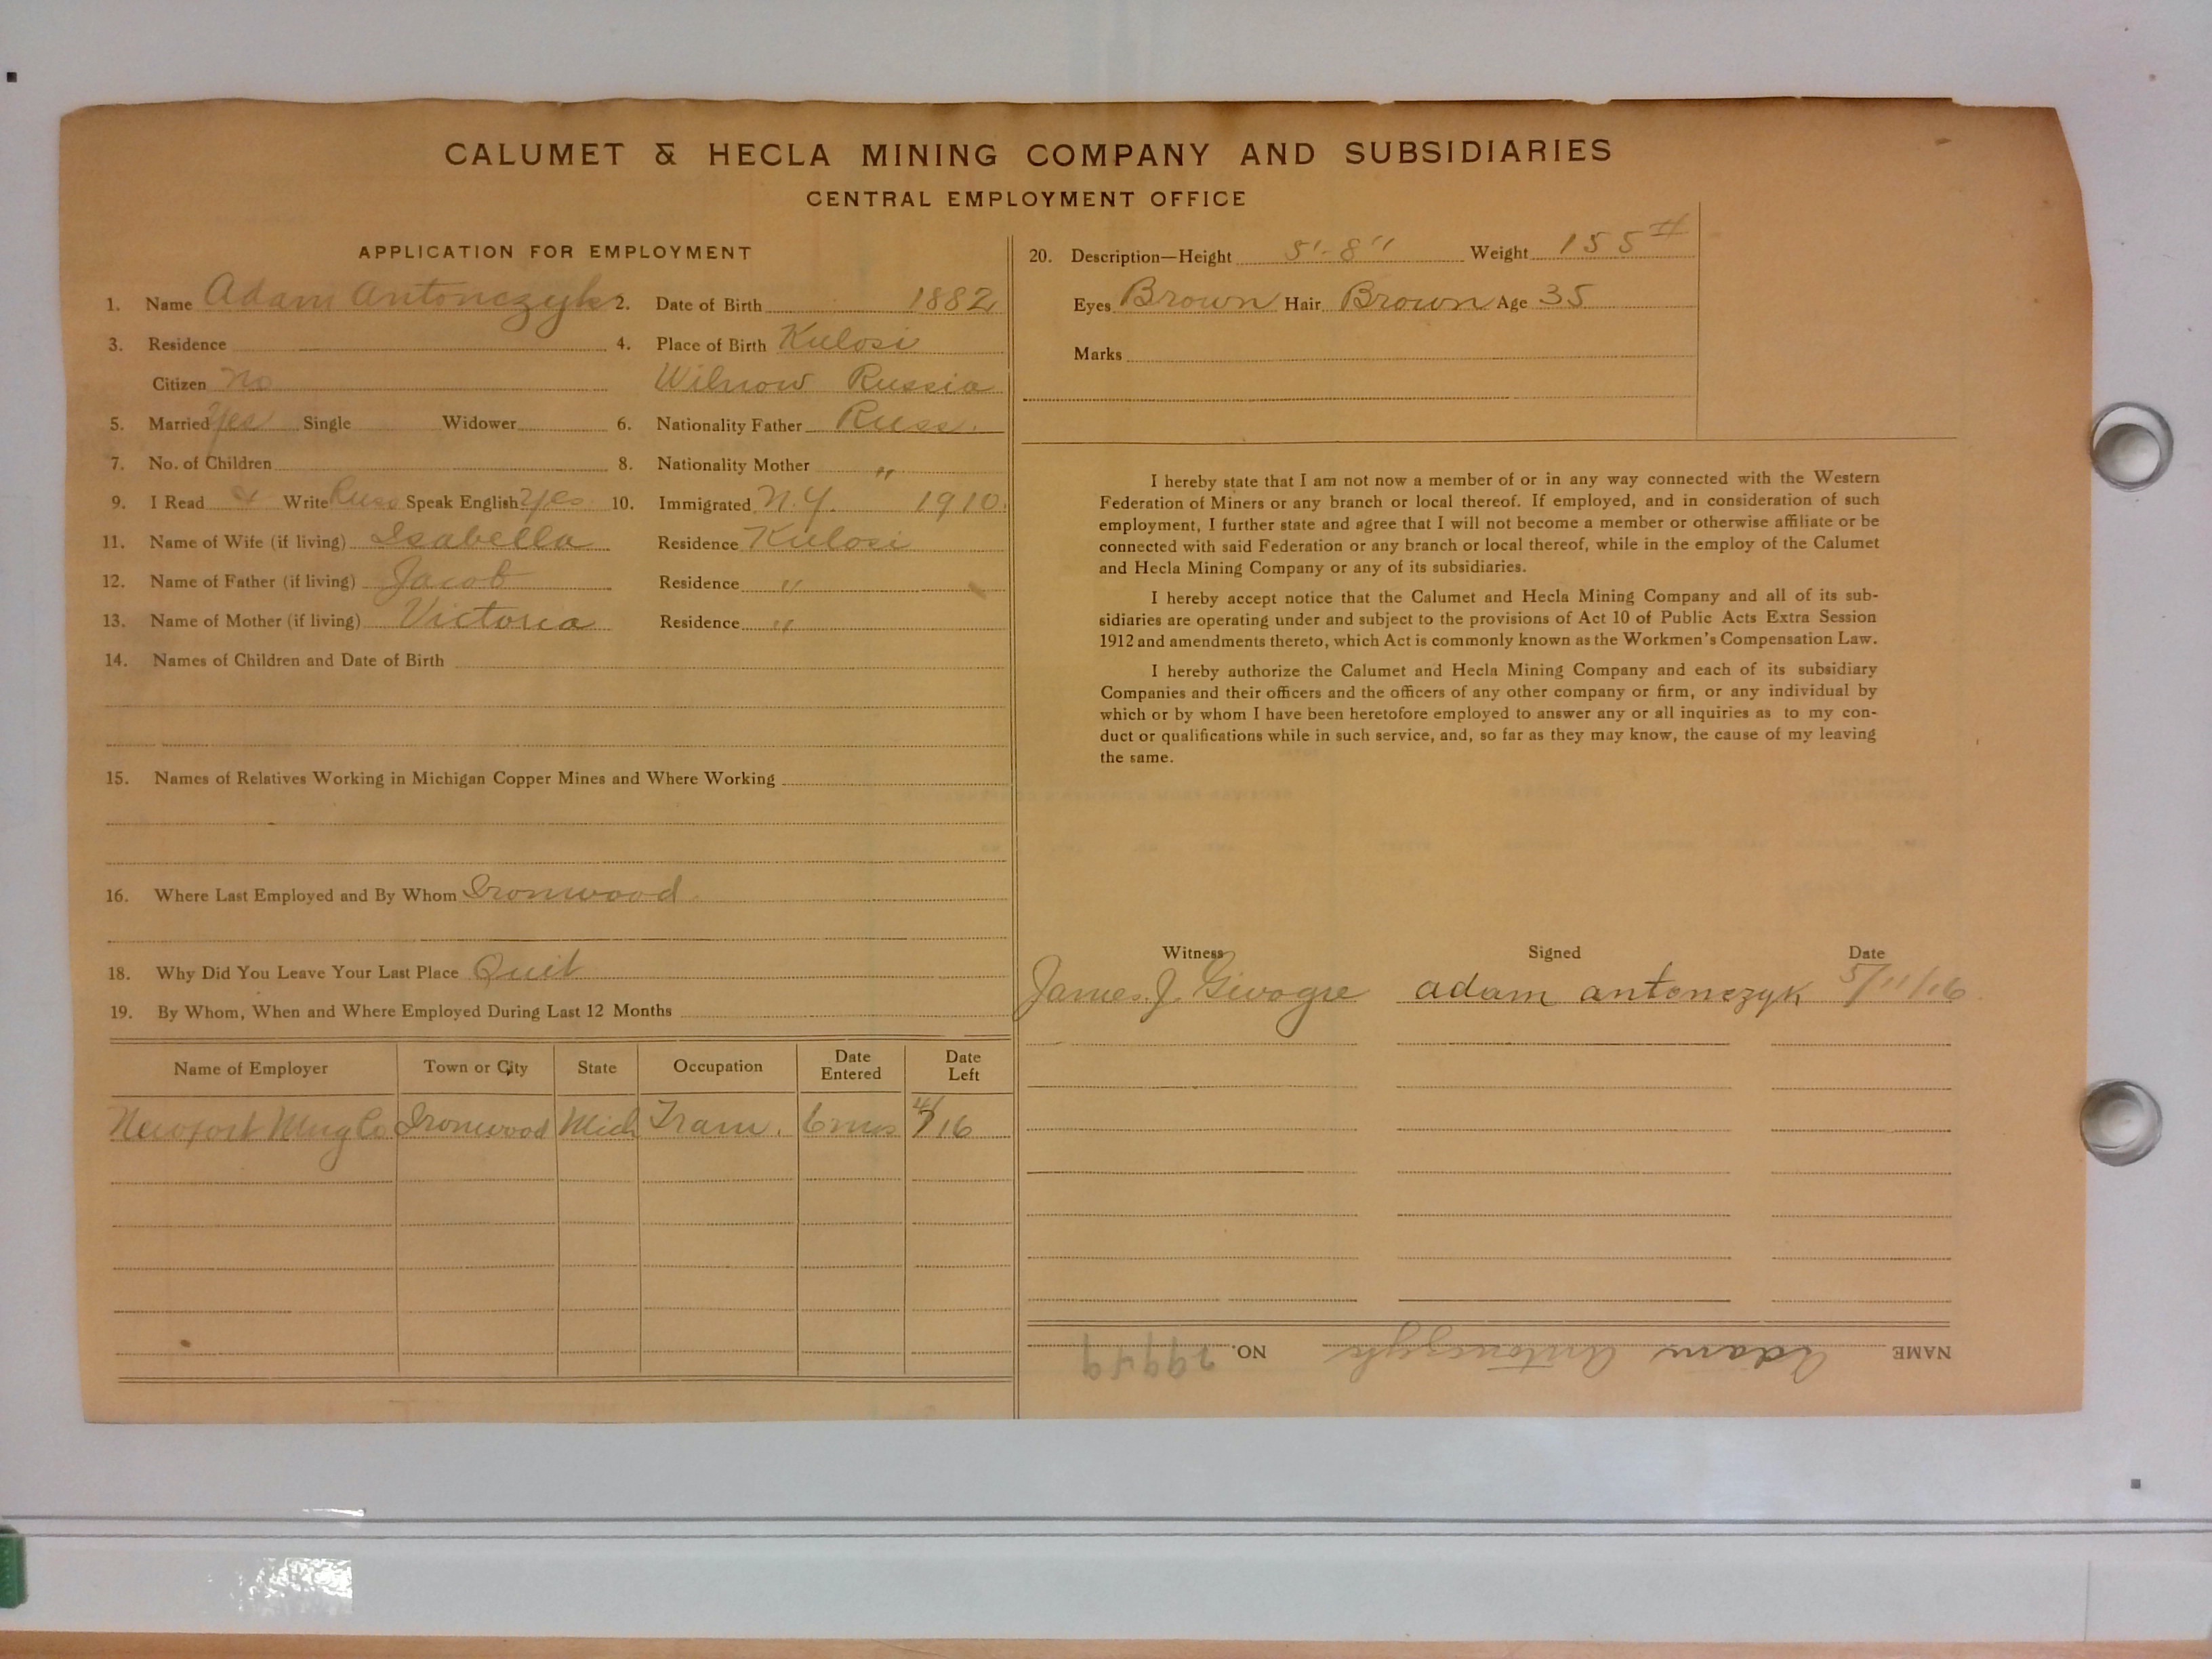 CALUMET & HECLA MINING COMPANY AND SUBSIDIARIES
CENTRAL EMPLOYMENT OFFICE
APPLICATION FOR EMPLOYMENT
1. Name Adam Antonczyk 2. Date of Birth 1882
3. Residence 4. Place of Birth Kulosi
Citizen no Wilnow Russia
5. Married Yes Single Widower 6. Nationality Father Russ.
7. No. of Children 8. Nationality Mother "
9. I Read & Write Russ Speak English Yes 10. Immigrated N.Y. 1910.
11. Name of Wife (if living) Isabella Residence Kulosi
12. Name of Father (if living) Jacob Residence "
13. Name of Mother (if living) Victoria Residence "
14. Names of Children and Date of Birth
15. Names of Relatives Working in Michigan Copper Mines and Where Working
16. Where Last Employed and By Whom Ironwood
18. Why Did You Leave Your Last Place Quit
19. By Whom, When and Where Employed During Last 12 Months
Name of Employer Town or City State Occupation Date Entered Date Left
Newport Mng Co Ironwood Mich Tram. 6 mos 4/16
20. Description—Height 5'-8" Weight 155#
Eyes Brown Hair Brown Age 35
Marks
I hereby state that I am not now a member of or in any way connected with the Western
Federation of Miners or any branch or local thereof. If employed, and in consideration of such
employment, I further state and agree that I will not become a member or otherwise affiliate or be
connected with said Federation or any branch or local thereof, while in the employ of the Calumet
and Hecla Mining Company or any of its subsidiaries.
I hereby accept notice that the Calumet and Hecla Mining Company and all of its sub-
sidiaries are operating under and subject to the provisions of Act 10 of Public Acts Extra Session
1912 and amendments thereto, which Act is commonly known as the Workmen's Compensation Law.
I hereby authorize the Calumet and Hecla Mining Company and each of its subsidiary
Companies and their officers and the officers of any other company or firm, or any individual by
which or by whom I have been heretofore employed to answer any or all inquiries as to my con-
duct or qualifications while in such service, and, so far as they may know, the cause of my leaving
the same.
Witness Signed Date
James J. adam antonczyk 5/11/16
NAME Adam Antonczyk NO.